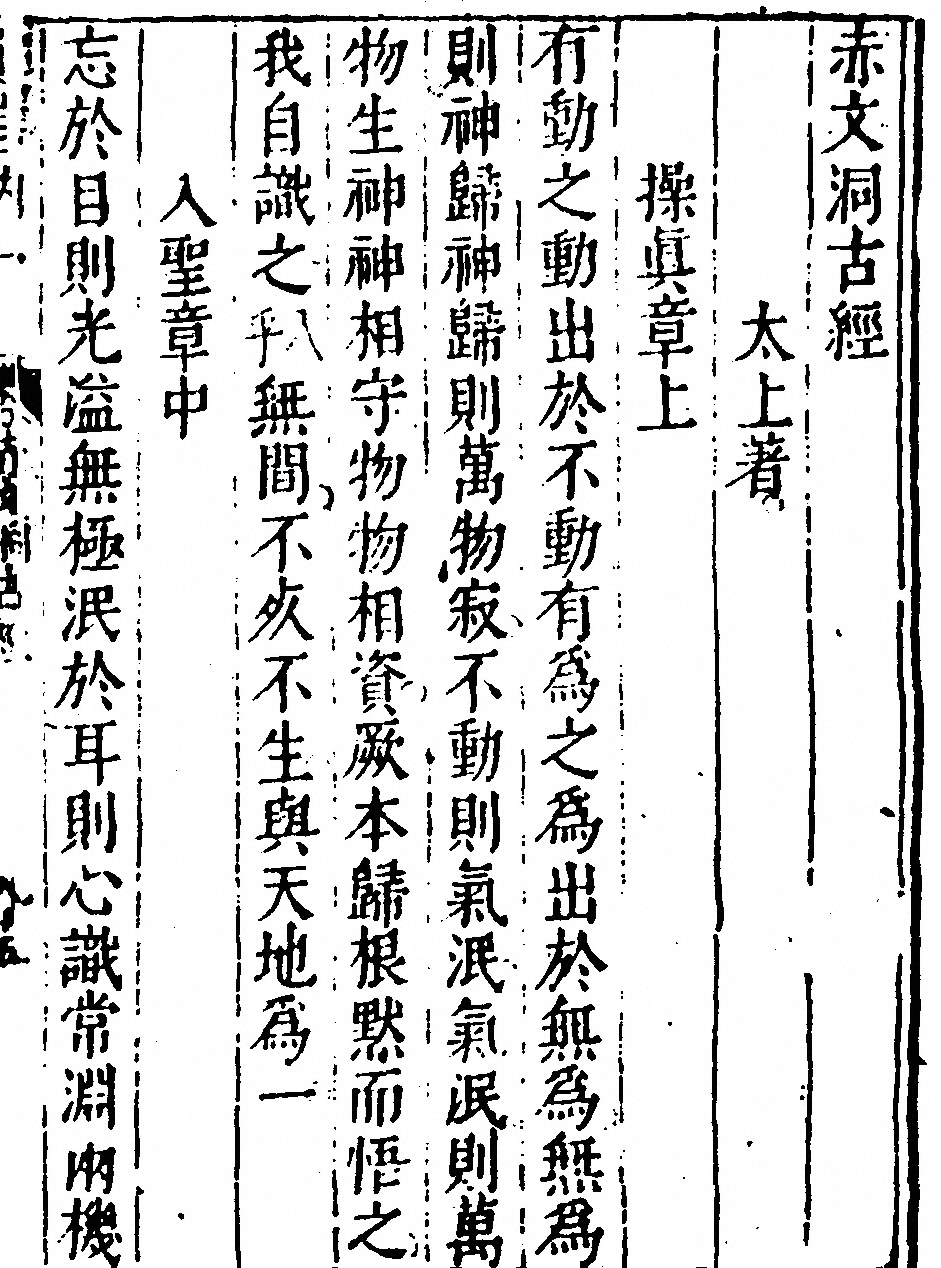 赤文洞古經
太上著
操眞章上
有動之動出於不動有爲之爲出於無爲無爲
則神歸神歸則萬物寂不動則氣泯氣泯則萬
物生神神相守物物相資厥本歸根默而悟之
我自識之入乎無間不死不生與天地爲一
入聖章中
忘於目則光溢無極泯於耳則心識常淵兩機